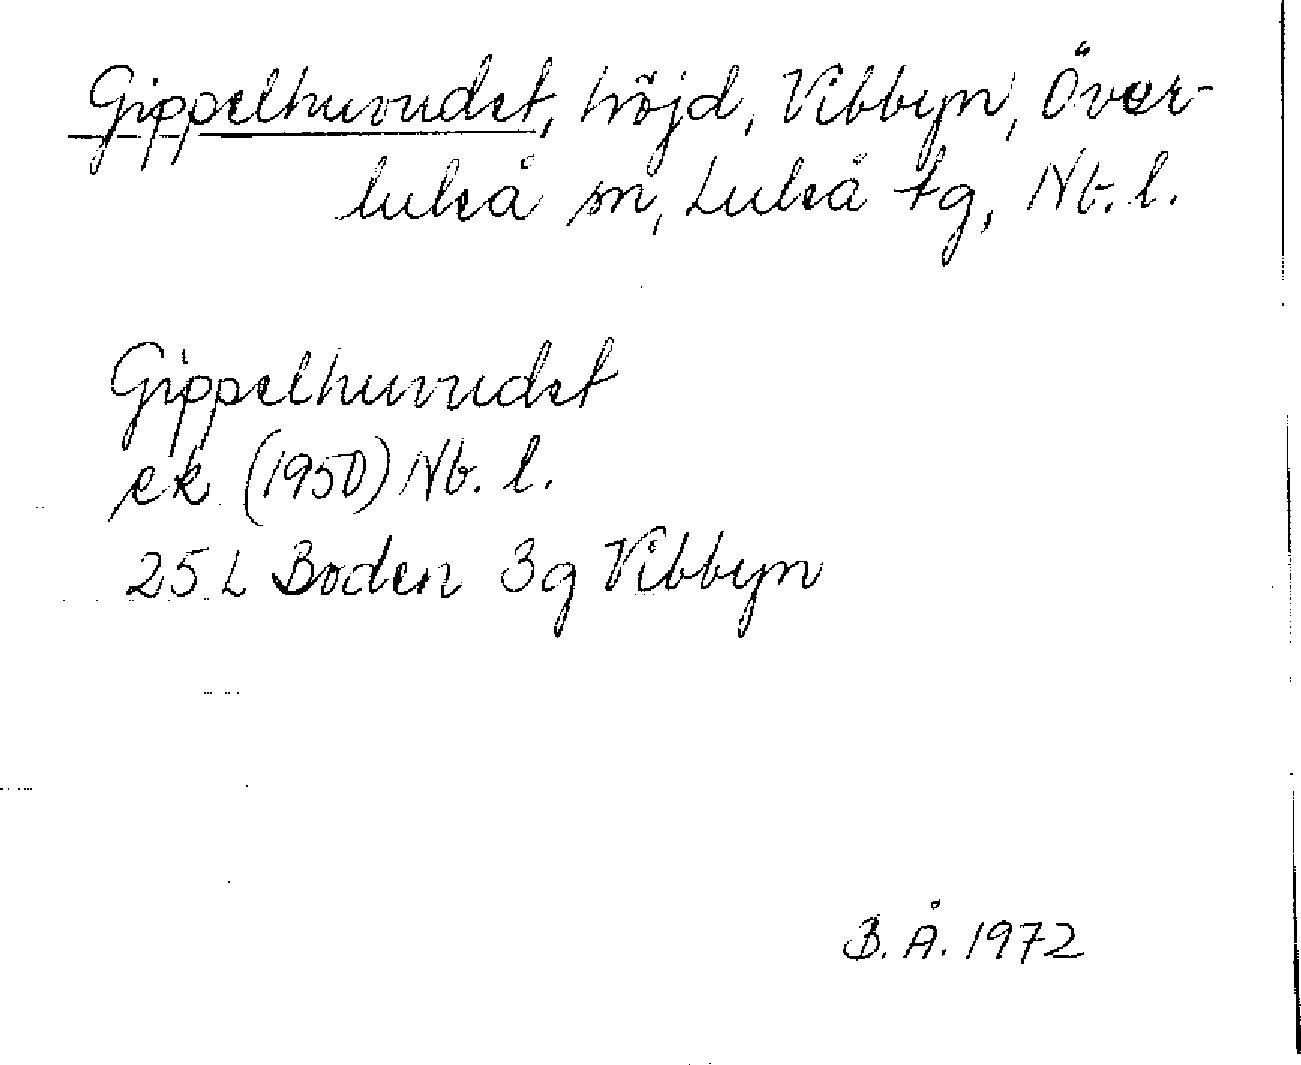 Gippelhuvudet, höjd, Vibbyn, Över-
luleå sn, Luleå tg, Nb. l.
Gippelhuvudet
ek (1950) Nb. l.
25 L Boden 3g Vibbyn
B. Å. 1972